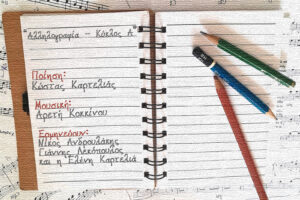 "Αλληλογραφία - Κύκλος Α'"
Ποίηση:
Κώστας Καρτελιάς
Μουσική:
Αρετή Κοκκίνου
Ερμηνεύουν:
Νίκος Ανδρουλάκης
Γιάννης Λεκόπουλος
και η Ελένη Καρτελιά